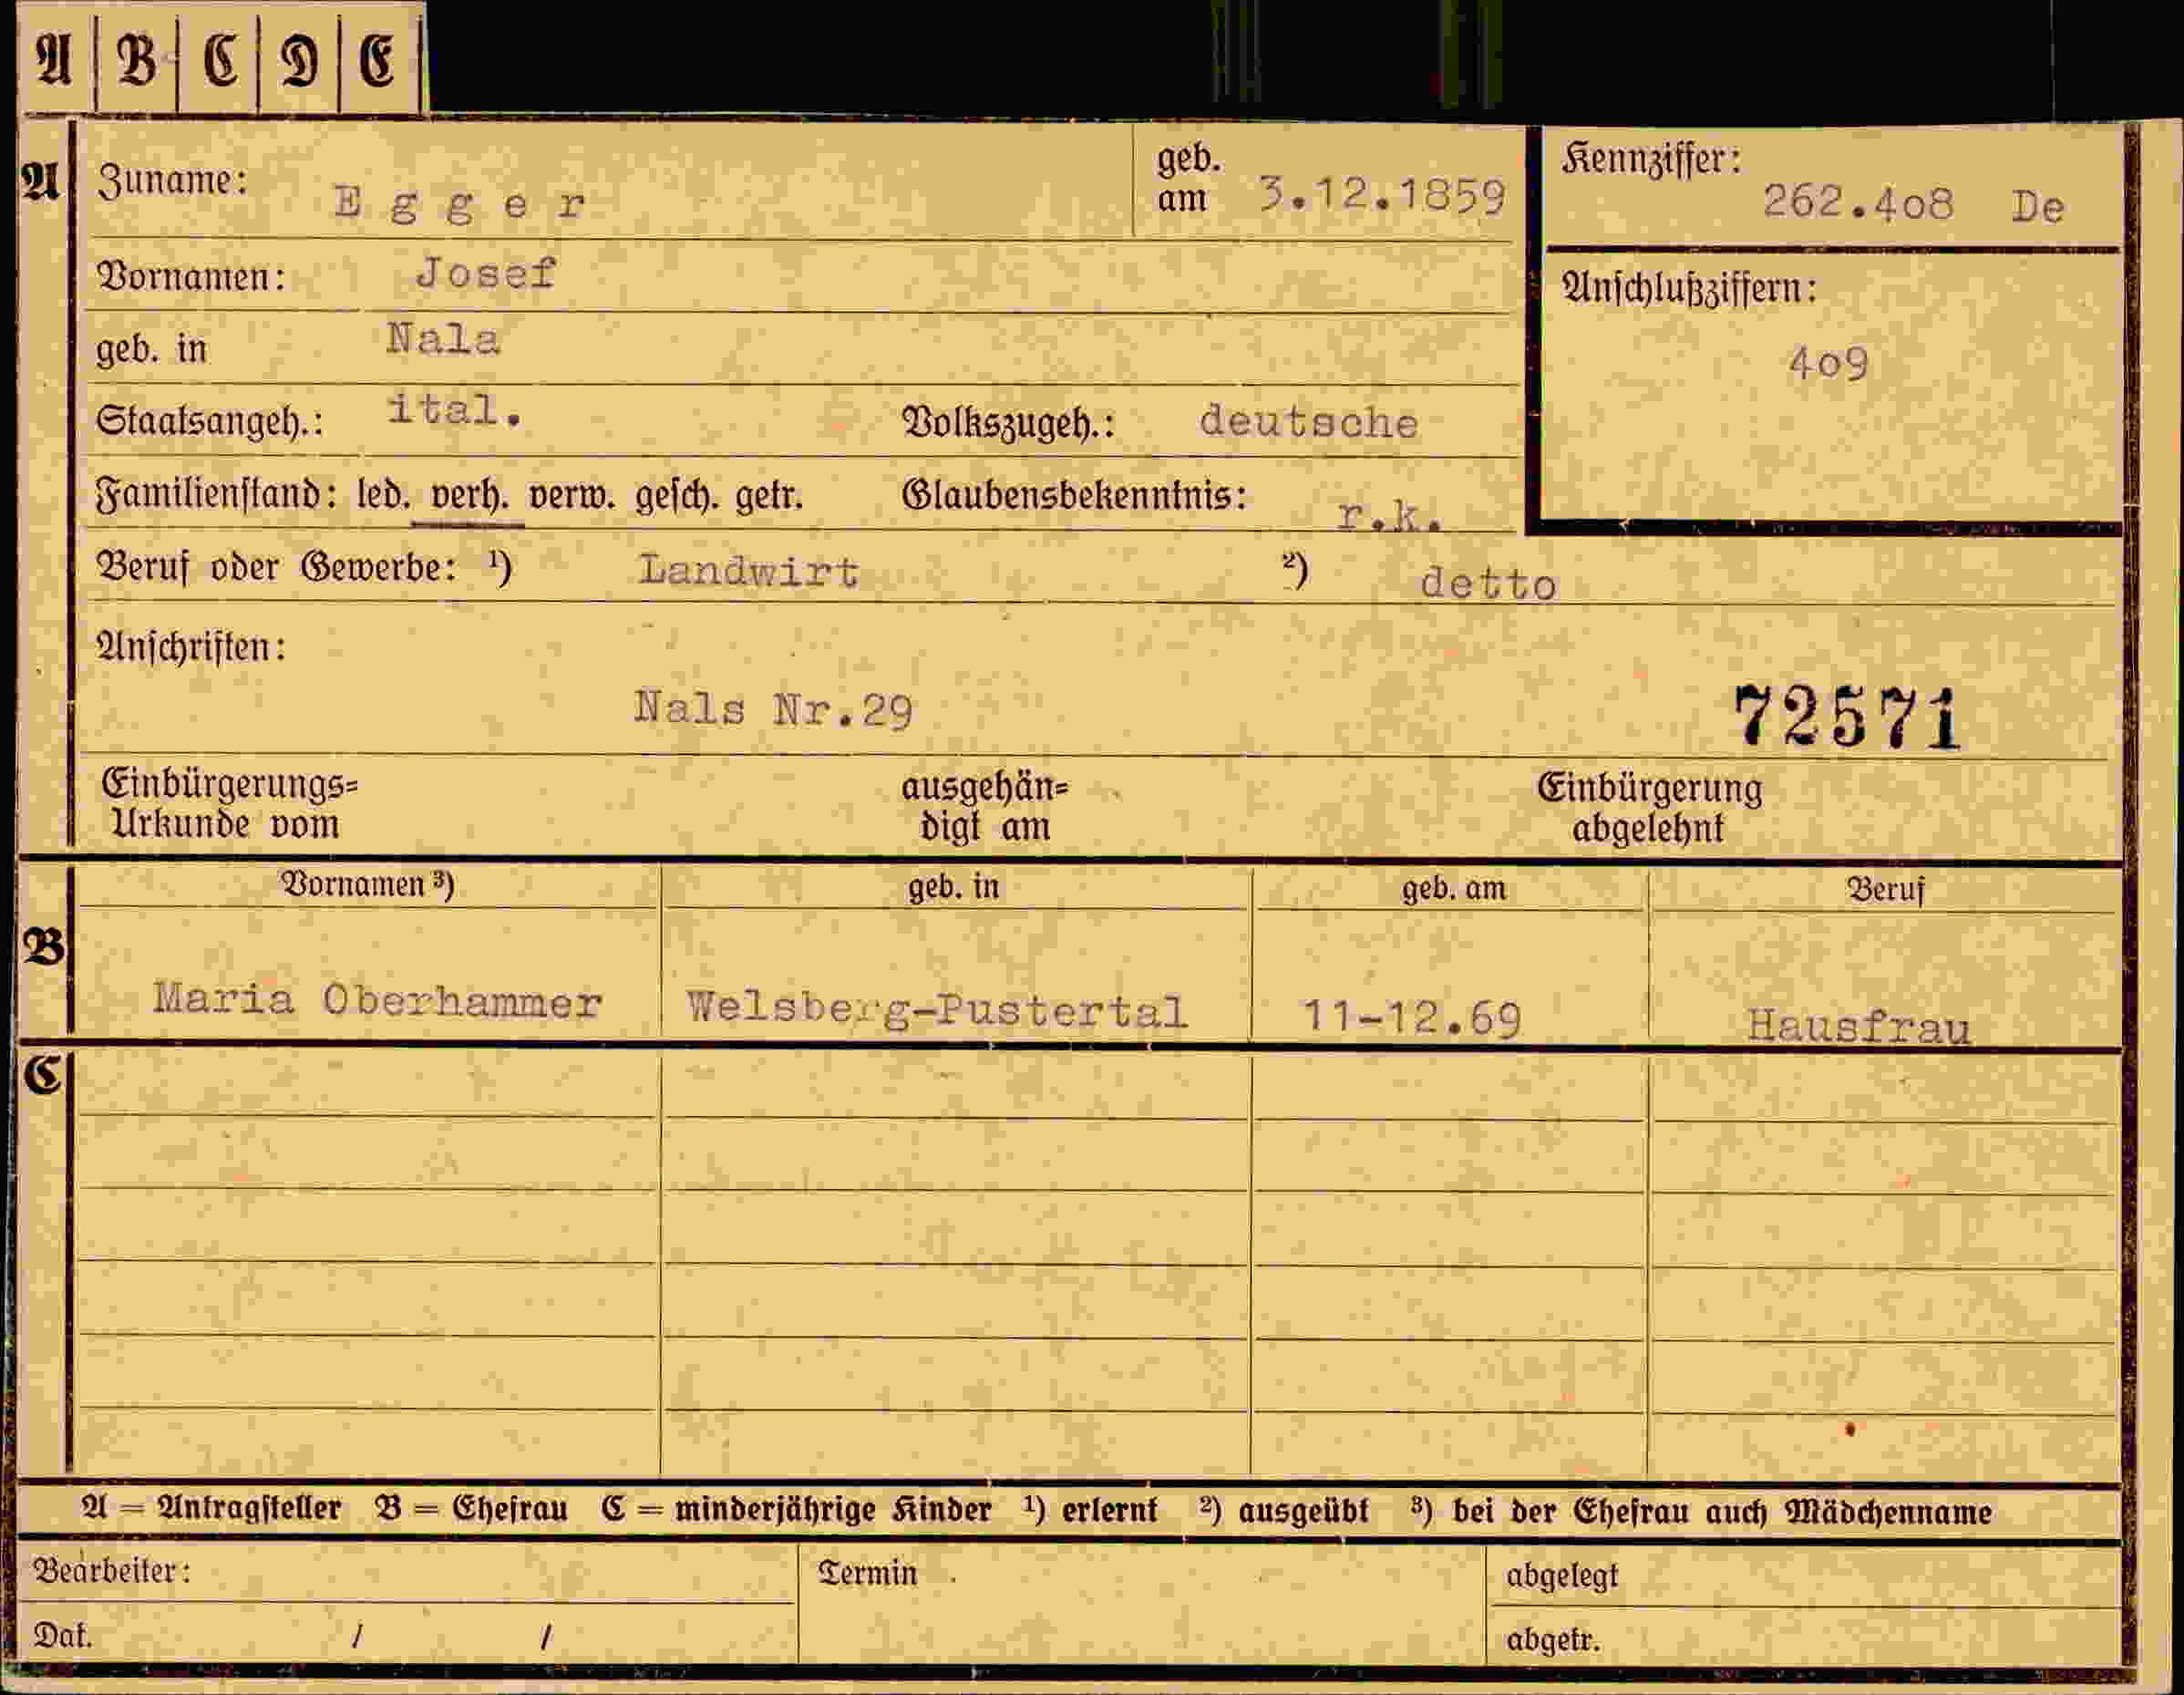 A B C D E
A Zuname: Egger geb. am 3.12.1859 Kennziffer: 262.408 De
Vornamen: Josef Anschlußziffern:
geb. in Nala 409
Staatsangeh.: ital. Volkszugeh.: deutsche
Familienstand: led. verh. verw. gesch. getr. Glaubensbekenntnis: r.k.
Beruf oder Gewerbe: ¹) Landwirt ²) detto
Anschriften:
Nals Nr.29 72571
Einbürgerungs= ausgehän= Einbürgerung
Urkunde vom digt am abgelehnt
Vornamen ³) geb. in geb. am Beruf
B
Maria Oberhammer Welsberg-Pustertal 11-12.69 Hausfrau
C
A = Antragsteller B = Ehefrau C = minderjährige Kinder ¹) erlernt ²) ausgeübt ³) bei der Ehefrau auch Mädchenname
Bearbeiter: Termin abgelegt
Dat. / / abgetr.